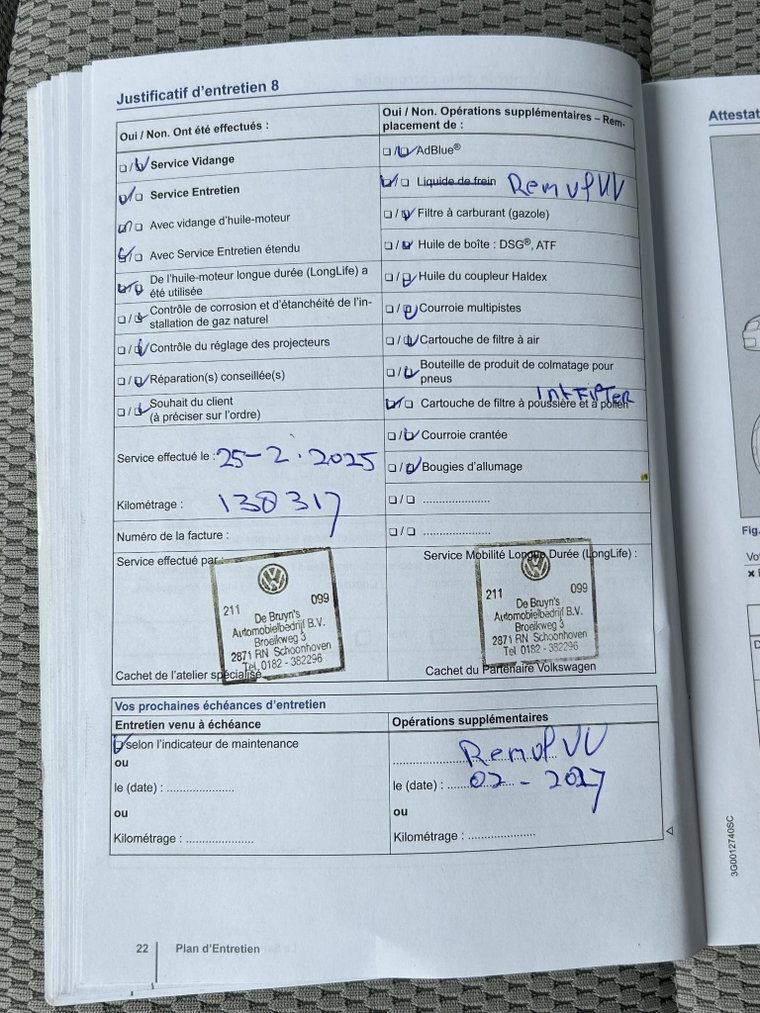 Justificatif d'entretien 8
Oui / Non. Ont été effectués :
❏ / ❏ Service Vidange
❏ / ❏ Service Entretien
❏ / ❏ Avec vidange d'huile-moteur
❏ / ❏ Avec Service Entretien étendu
❏ / ❏ De l'huile-moteur longue durée (LongLife) a
été utilisée
❏ / ❏ Contrôle de corrosion et d'étanchéité de l'in-
stallation de gaz naturel
❏ / ❏ Contrôle du réglage des projecteurs
❏ / ❏ Réparation(s) conseillée(s)
❏ / ❏ Souhait du client
(à préciser sur l'ordre)
Service effectué le : 25-2.2025
Kilométrage : 138317
Numéro de la facture :
Oui / Non. Opérations supplémentaires – Rem-
placement de :
❏ / ❏ AdBlue®
❏ / ❏ Liquide de frein Remvl VV
❏ / ❏ Filtre à carburant (gazole)
❏ / ❏ Huile de boîte : DSG®, ATF
❏ / ❏ Huile du coupleur Haldex
❏ / ❏ Courroie multipistes
❏ / ❏ Cartouche de filtre à air
❏ / ❏ Bouteille de produit de colmatage pour
pneus
Int FilTer
❏ / ❏ Cartouche de filtre à poussière et à pollen
❏ / ❏ Courroie crantée
❏ / ❏ Bougies d'allumage
❏ / ❏ .....................
❏ / ❏ .....................
Service effectué par :
211
099
De Bruyn's
Automobielbedrijf B.V.
Broeikweg 3
2871 RN Schoonhoven
Tel. 0182 - 382296
Cachet de l'atelier spécialisé
Service Mobilité Longue Durée (LongLife) :
211
099
De Bruyn's
Automobielbedrijf B.V.
Broeikweg 3
2871 RN Schoonhoven
Tel 0182 - 382296
Cachet du Partenaire Volkswagen
Vos prochaines échéances d'entretien
Entretien venu à échéance
❏ selon l'indicateur de maintenance
ou
le (date) : .....................
ou
Kilométrage : .....................
Opérations supplémentaires
Remvl VV
le (date) : 02 - 2027
ou
Kilométrage : .....................
22
Plan d'Entretien
Attestat
Fig.
Vo
3G0012740SC